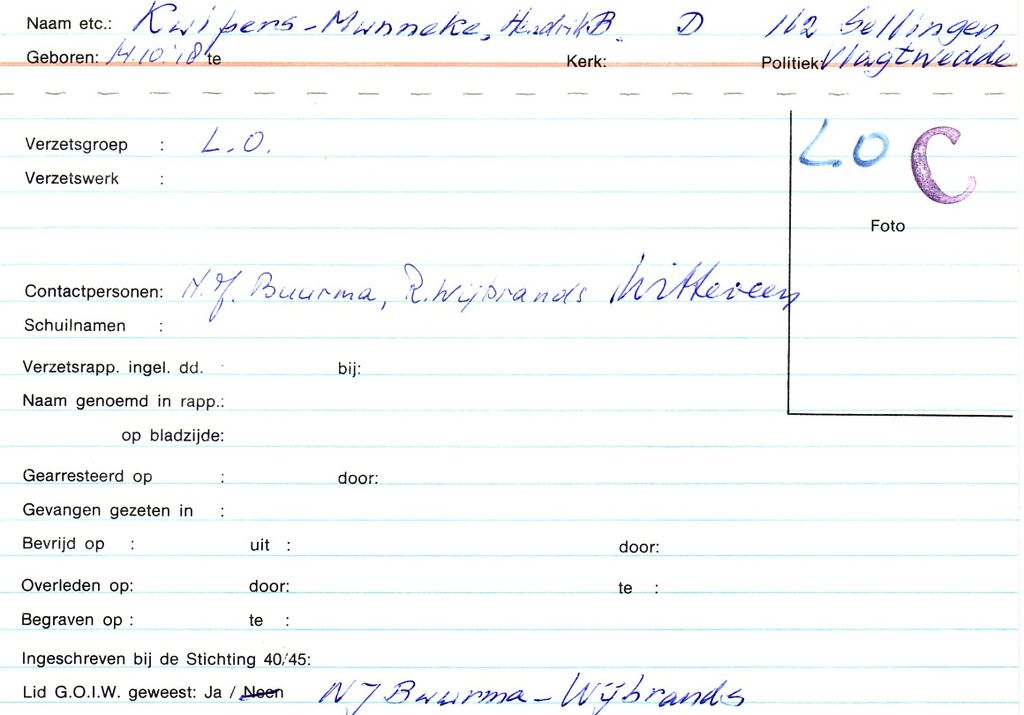 Naam etc.: Kuipers-Munneke, Hendrik B. D 162 Sellingen
Geboren: 14.10.'18 te Kerk: Politiek: Vlagtwedde
Verzetsgroep : L.O.
LO C
Verzetswerk :
Foto
Contactpersonen: N.J. Buurma, R. Wijbrands Witteveen
Schuilnamen :
Verzetsrapp. ingel. dd. bij:
Naam genoemd in rapp.:
op bladzijde:
Gearresteerd op : door:
Gevangen gezeten in :
Bevrijd op : uit : door:
Overleden op: door: te :
Begraven op : te :
Ingeschreven bij de Stichting 40/45:
Lid G.O.I.W. geweest: Ja / Neen N J Buurma - Wijbrands